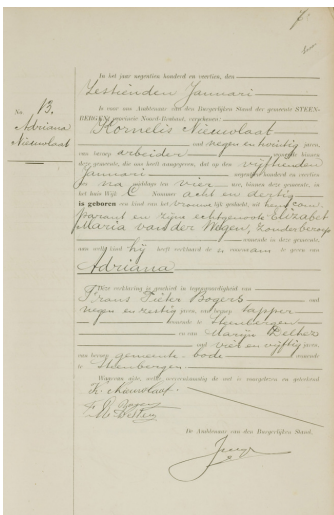 No. 13.
Adriana
Nieuwlaat
In het jaar negentien honderd en veertien, den
Zestienden Januari
is voor ons Ambtenaar van den Burgerlijken Stand der gemeente STEEN-
BERGEN, provincie Noord-Brabant, verschenen:
Kornelis Nieuwlaat
oud negen en twintig jaren,
van beroep arbeider wonende binnen
deze gemeente, die ons heeft aangegeven, dat op den vijftienden
Januari negentienhonderd en veertien
des na middags ten vier ure, binnen deze gemeente, in
het huis Wijk C Nummer acht en dertig
is geboren een kind van het vrouwelijk geslacht, uit hem com-
parant en zijne echtgenoote Elizabet
Maria van der Wegen, zonder beroep
wonende in deze gemeente,
aan welk kind hij heeft verklaard de voornaam te geven van
Adriana
Deze verklaring is geschied in tegenwoordigheid van
Frans Pieter Bogers oud
negen en zestig jaren, van beroep tapper
wonende te Steenbergen
en van Marijn
oud vier en vijftig jaren,
van beroep gemeente bode wonende
te Steenbergen
Waarvan akte, welke overeenkomstig de wet is voorgelezen en geteekend
K. Nieuwlaat
De Ambtenaar van den Burgerlijken Stand,